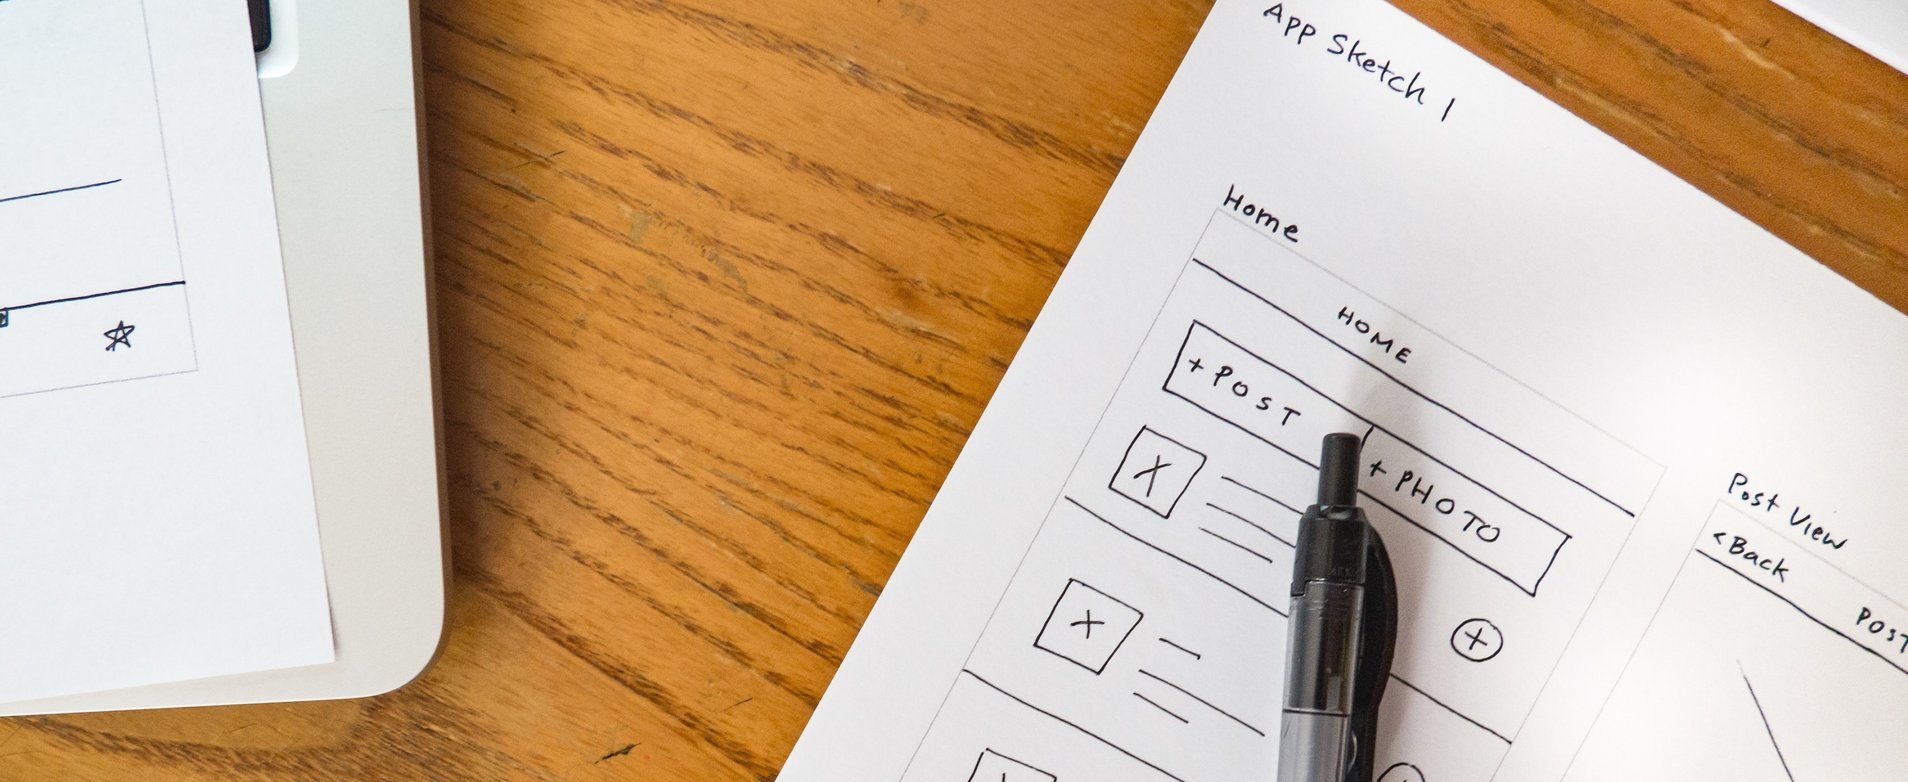 App Sketch 1
Home
HOME
+ POST
+ PHOTO
Post View
< Back
POST